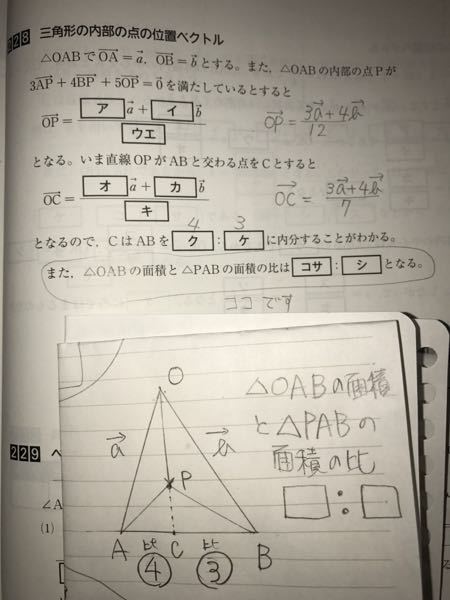 228 三角形の内部の点の位置ベクトル
△OABでOA→=a→, OB→=b→とする。また,△OABの内部の点Pが
3AP→+4BP→+5OP→=0→を満たしているとすると
OP→= (ア a→+ イ b→)/ウエ OP→= (3a→+4b→)/12
となる。いま直線OPがABと交わる点をCとすると
OC→= (オ a→+ カ b→)/キ OC→= (3a→+4b→)/7
4 3
となるので,CはABを ク : ケ に内分することがわかる。
また,△OABの面積と△PABの面積の比は コサ : シ となる。
ココです
229
∠A
(1)
O
△OABの面積
と△PABの
面積の比
□:□
a→ b→
P
A C B
比 比
④ ③